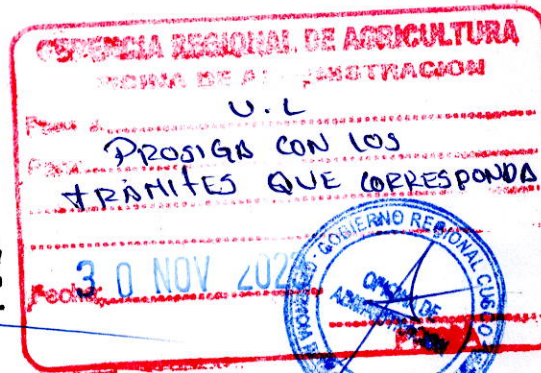 GERENCIA REGIONAL DE AGRICULTURA
OFICINA DE ADMINISTRACION
U.L
PROSIGA CON LOS
TRÁMITES QUE CORRESPONDA
Fecha: 30 NOV 202
GOBIERNO REGIONAL CUSCO
OFICINA DE
ADMINISTRACION